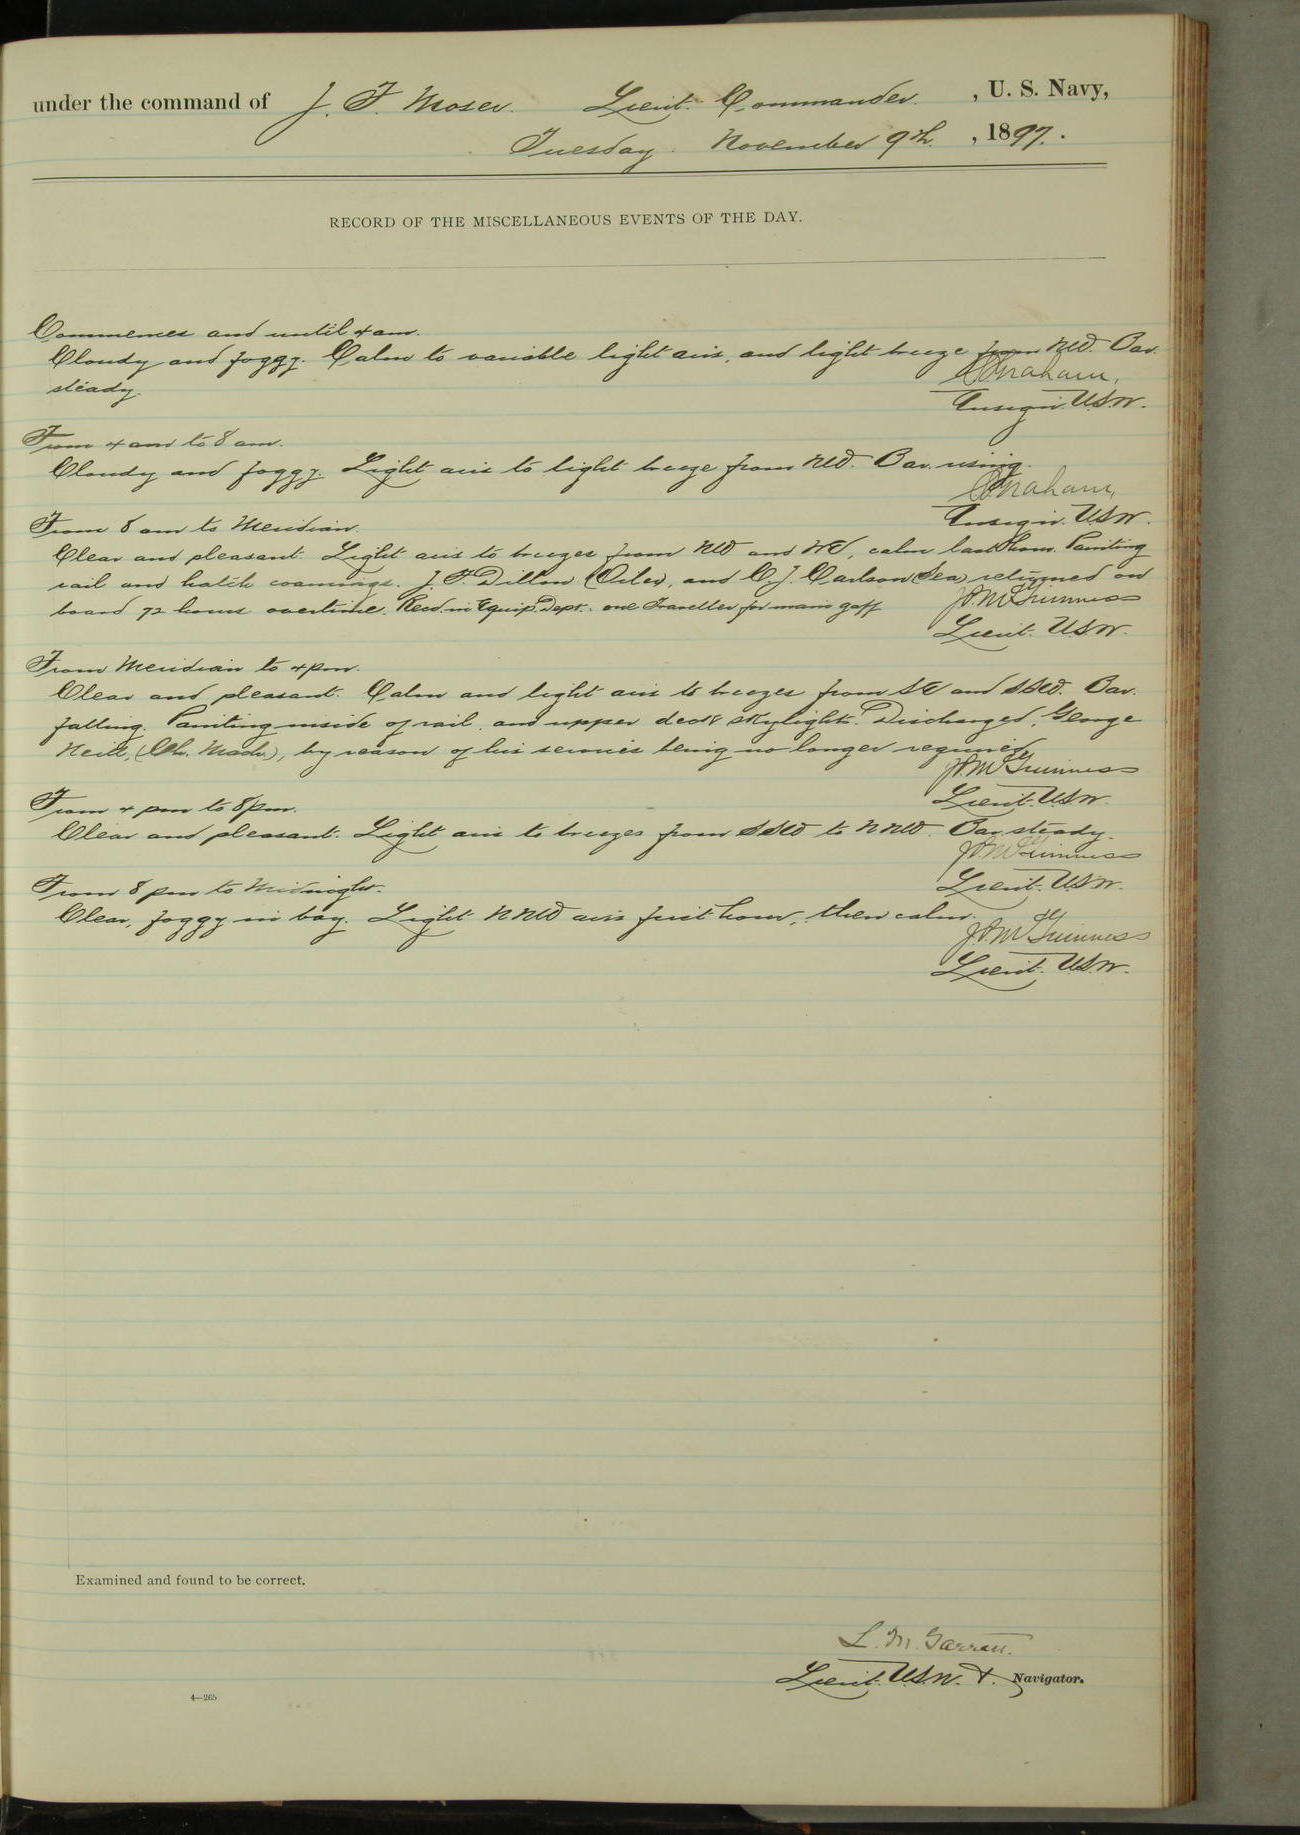 under the command of J. F. Moser. Lieut. Commander. , U. S. Navy,
Tuesday. November 9th. , 1897.
RECORD OF THE MISCELLANEOUS EVENTS OF THE DAY.
Commences and until 4 am.
Cloudy and foggy. Calm to variable light airs, and light breeze from NW. Bar.
steady.
Ensign. U.S.N.
From 4 am to 8 am.
Cloudy and foggy. Light airs to light breeze from NW. Bar. rising.
Ensign. U.S.N.
From 8 am to Meridian.
Clear and pleasant. Light airs to breezes from NW and NE, calm last hour. Painting
rail and hatch coamings. J. F. Dillon (Oiler), and C. J. Carlson (Sea) returned on
board 72 hours overtime. Recd. in Equip. Dept. one Traveller for main gaff
J.P. McGuinness
Lieut. U.S.N.
From Meridian to 4 pm.
Clear and pleasant. Calm and light airs to breezes from SE and SSW. Bar.
falling. Painting inside of rail, and upper deck skylights. Discharged, George
Neill, (Ch. Mach.), by reason of his services being no longer required.
J.P. McGuinness
Lieut. U.S.N.
From 4 pm to 8 pm.
Clear and pleasant. Light airs to breezes from SSW to NNW. Bar. steady.
J.P. McGuinness
Lieut. U.S.N.
From 8 pm to Midnight.
Clear, foggy in bay. Light NNW airs first hour, then calm.
J.P. McGuinness
Lieut. U.S.N.
Examined and found to be correct.
L. M. Garrett.
Lieut. U.S.N. & Navigator.
4—265